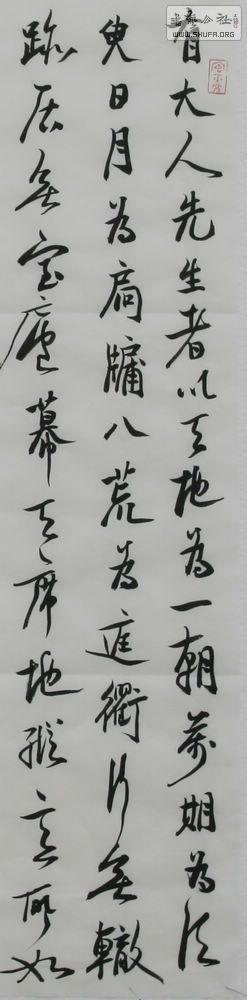 有大人先生者以天地為一朝萬期為須
臾日月為扃牖八荒為庭衢行無轍
跡居無室廬幕天席地縱意所如
書法公社
WWW.SHUFA.ORG